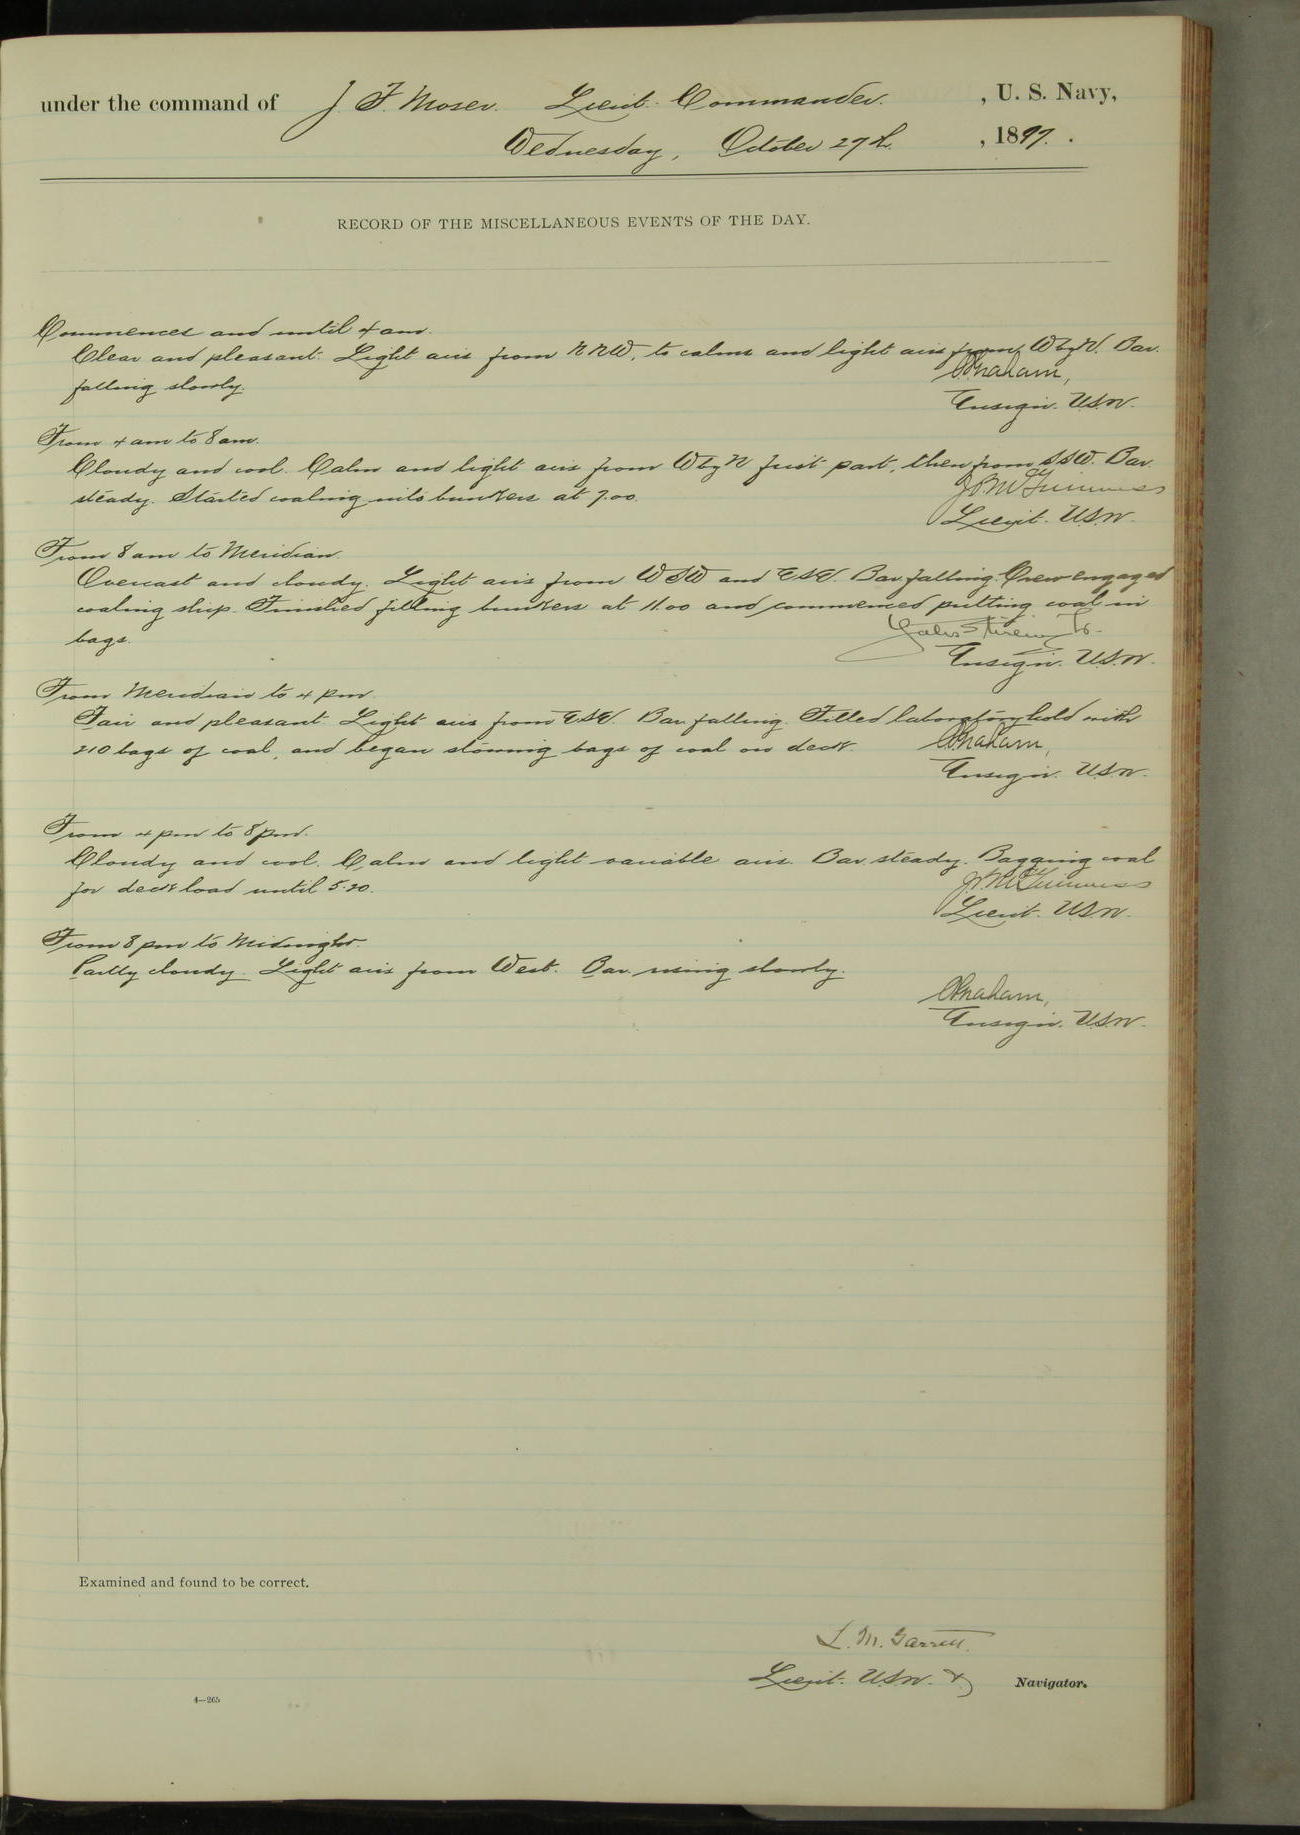 under the command of J. F. Moser. Lieut. Commander. , U. S. Navy,
Wednesday, October 27th. , 1897.
RECORD OF THE MISCELLANEOUS EVENTS OF THE DAY.
Commences and until 4 am.
Clear and pleasant. Light airs from NNW. to calms and light airs from WbyN. Bar.
falling slowly.
Ensign. U.S.N.
From 4 am to 8 am.
Cloudy and cool. Calm and light airs from WbyN first part, then from SSW. Bar.
steady. Started coaling into bunkers at 7.00.
Lieut. U.S.N.
From 8 am to Meridian.
Overcast and cloudy. Light airs from WSW and ESE. Bar falling. Crew engaged
coaling ship. Finished filling bunkers at 11.00 and commenced putting coal in
bags.
Yates Stirling Jr.
Ensign. U.S.N.
From Meridian to 4 pm.
Fair and pleasant. Light airs from ESE. Bar falling. Filled laboratory hold with
210 bags of coal, and began stowing bags of coal on deck.
Ensign. U.S.N.
From 4 pm to 8 pm.
Cloudy and cool. Calm and light variable airs. Bar steady. Bagging coal
for deck load until 5.20.
Lieut. U.S.N.
From 8 pm to Midnight.
Partly cloudy. Light airs from West. Bar. rising slowly.
Ensign. U.S.N.
Examined and found to be correct.
L. M. Garrett.
Lieut. U.S.N. & Navigator.
4—265